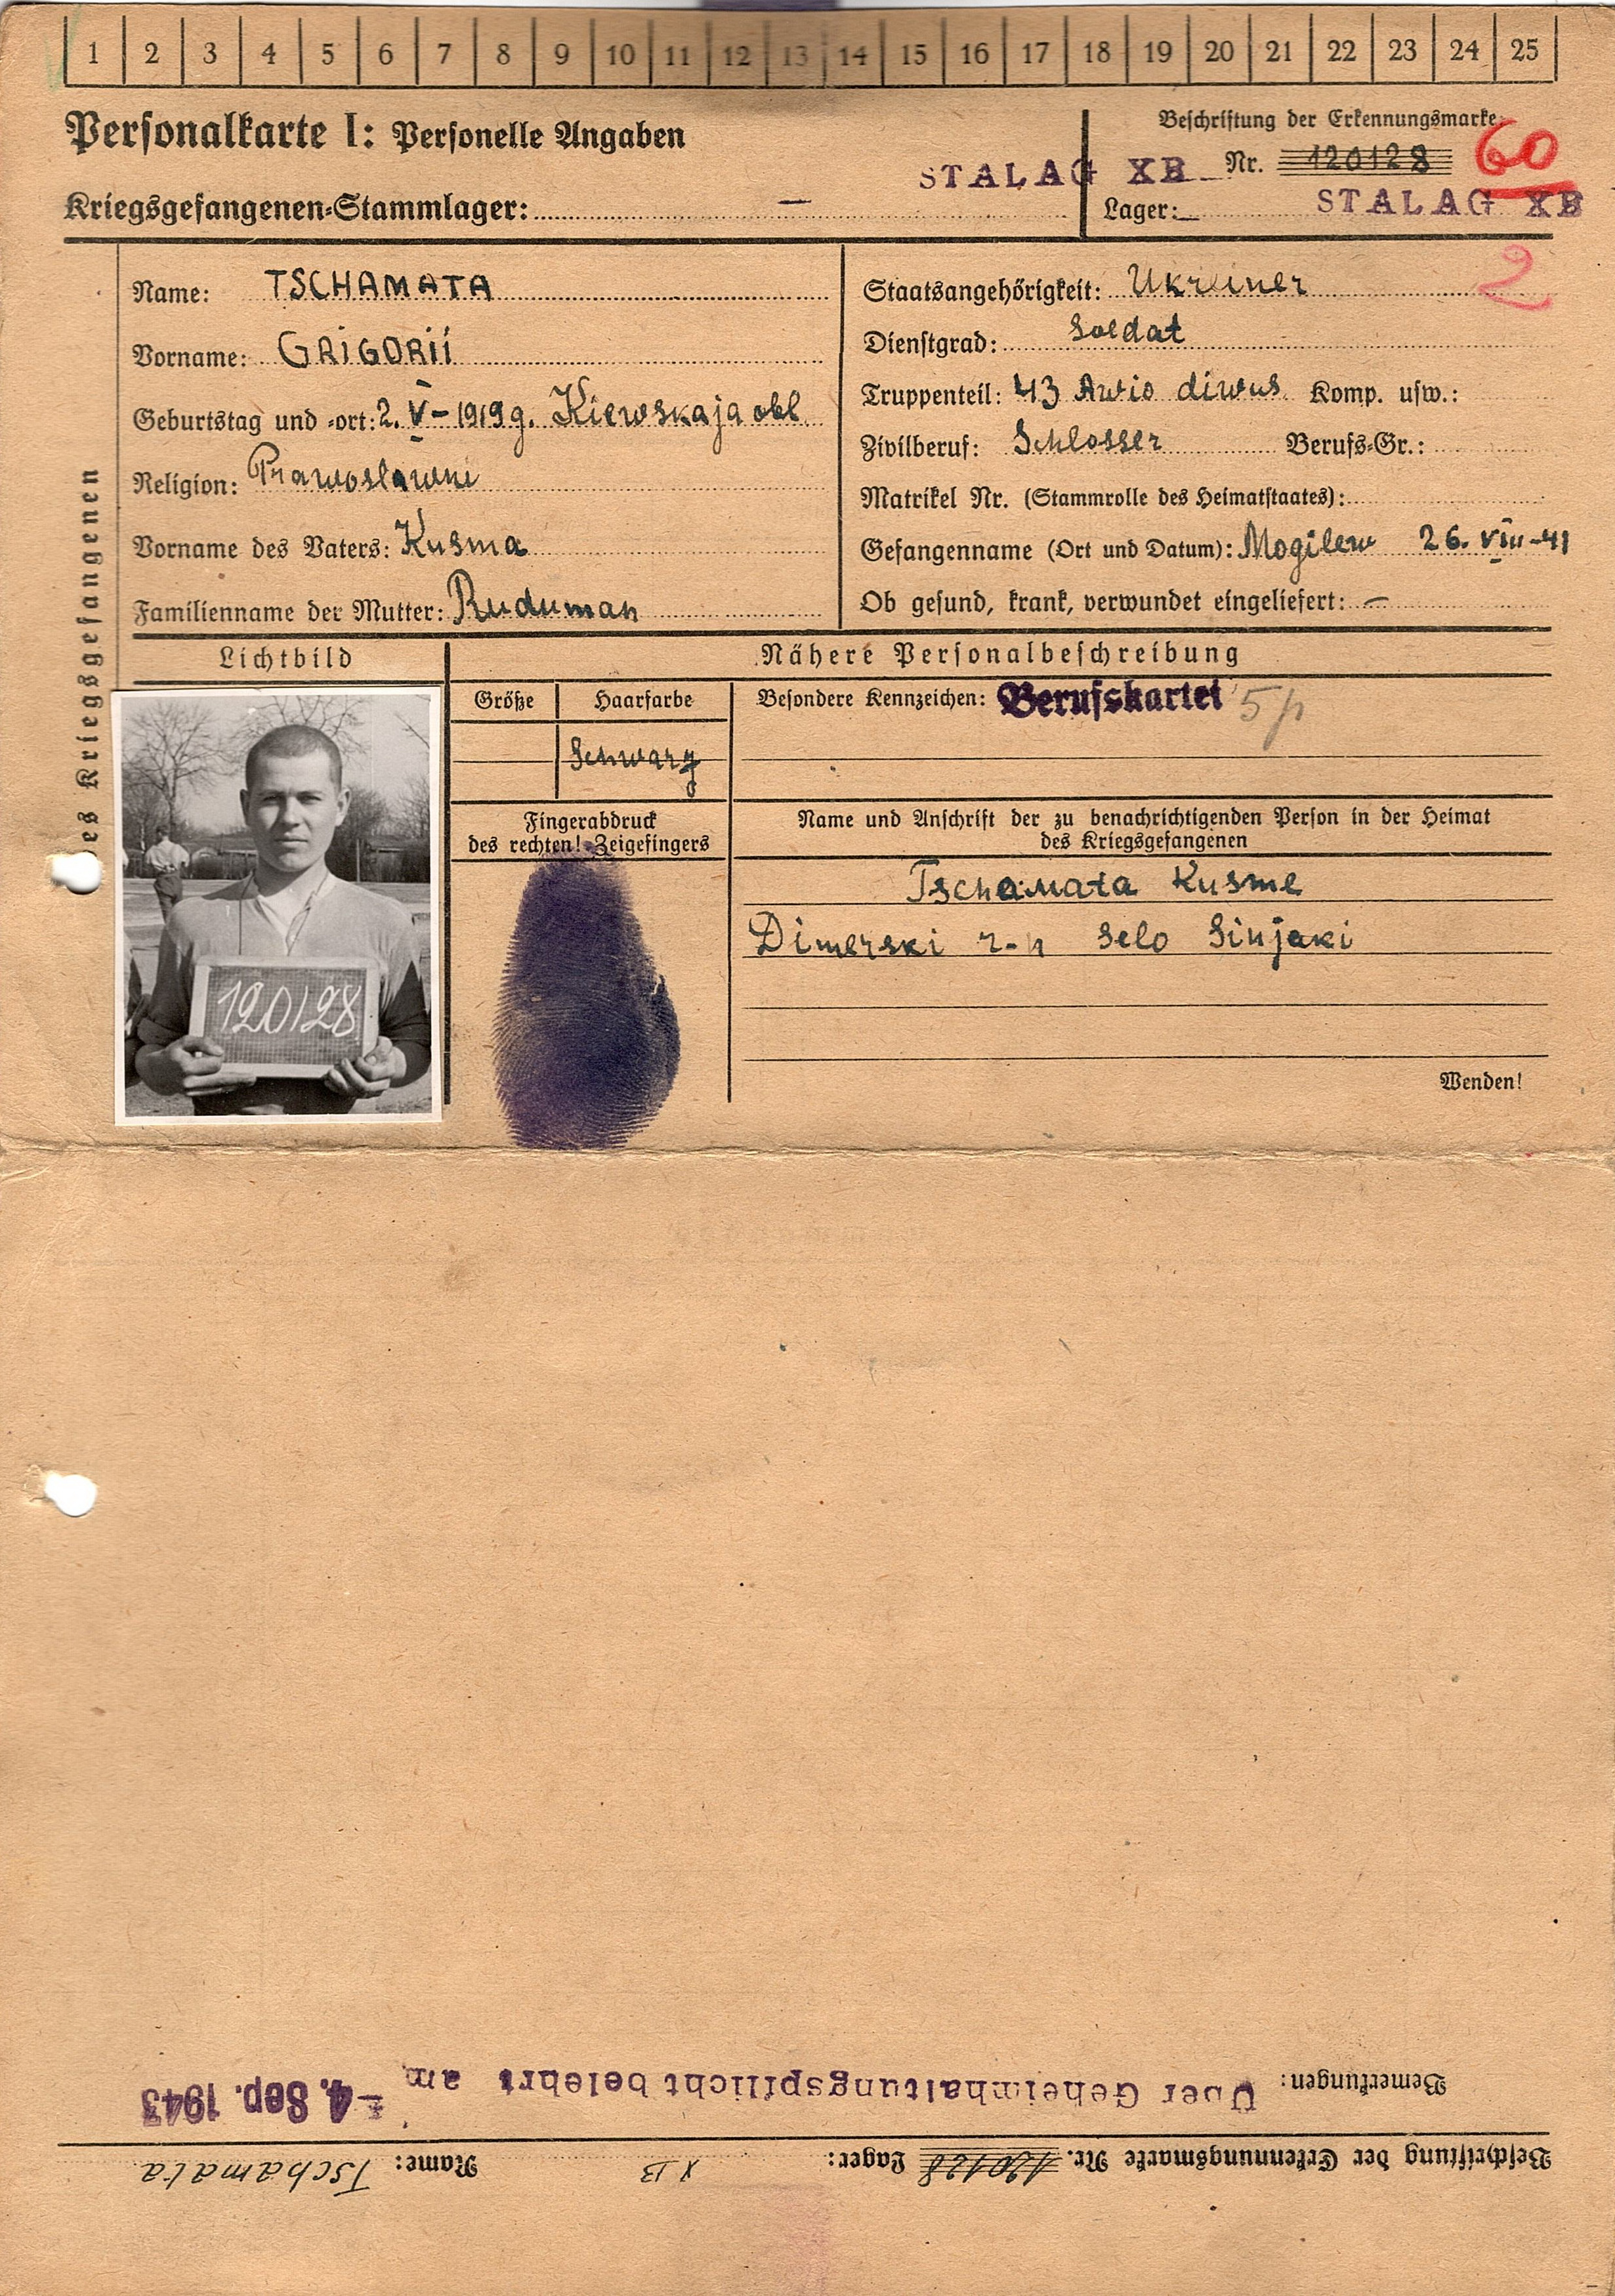 1 2 3 4 5 6 7 8 9 10 11 12 13 14 15 16 17 18 19 20 21 22 23 24 25
Personalkarte I: Personelle Angaben
Beschriftung der Erkennungsmarke
STALAG XB Nr. 120128 60
Kriegsgefangenen-Stammlager: —
Lager: STALAG XB
2
des Kriegsgefangenen
Name: TSCHAMATA
Vorname: GRIGORII
Geburtstag und -ort: 2. V – 1919 g. Kiewskaja obl.
Religion: Prawoslawni
Vorname des Vaters: Kusma
Familienname der Mutter: Ruduman
Staatsangehörigkeit: Ukreiner
Dienstgrad: Soldat
Truppenteil: 43 Awio diwus. Komp. usw.:
Zivilberuf: Schlosser Berufs-Gr.:
Matrikel Nr. (Stammrolle des Heimatstaates):
Gefangenname (Ort und Datum): Mogilew 26. VIII-41
Ob gesund, krank, verwundet eingeliefert: —
Lichtbild
Nähere Personalbeschreibung
Größe Haarfarbe
Schwarz
Besondere Kennzeichen: Berufskartei
Fingerabdruck
des rechten! Zeigefingers
Name und Anschrift der zu benachrichtigenden Person in der Heimat
des Kriegsgefangenen
Tschamata Kusme
Dimerski r-n Selo Sinjaki
Wenden!
120128
Beschriftung der Erkennungsmarke Nr. 120128 Lager: X B Name: Tschamata
Bemerkungen: Über Geheimhaltungspflicht belehrt am - 4. Sep. 1943